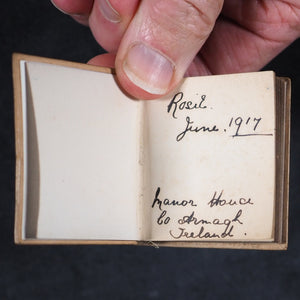 Rosie.
June. 1917
Manor House
Co Armagh
Ireland.